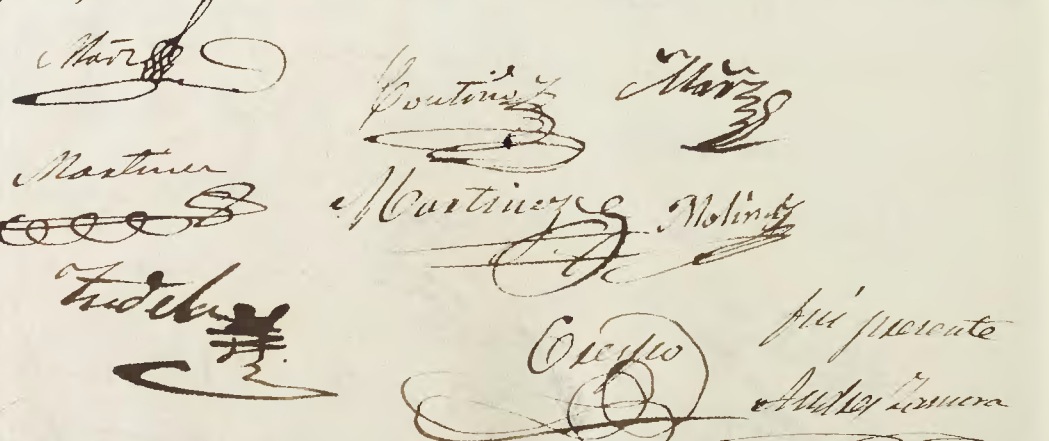 Marz Coutiño Marz
Martinez Martinez Molina
Tudela
Crespo fui presente
Andres Zamora